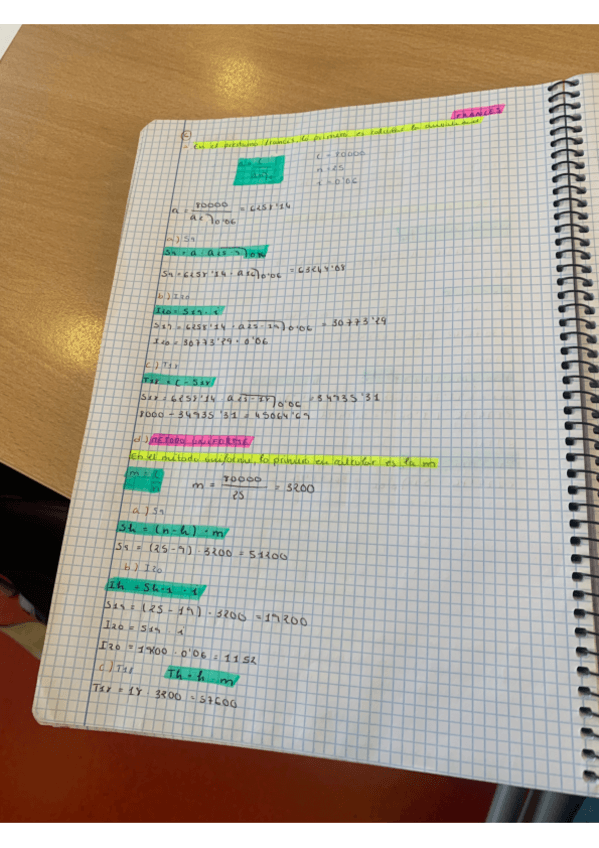 FRANCES
- En el préstamo francés, lo primero es calcular la anualidad
C = 80000
n = 25
i = 0'06
a = 80000 / a25⌉0'06 = 6258'14
a) S9
S9 = a · a25-9⌉0'06
S9 = 6258'14 · a16⌉0'06 = 63244'08
b) I20
I20 = S19 · i
S19 = 6258'14 · a25-19⌉0'06 = 30773'29
I20 = 30773'29 · 0'06
c) T18
T18 = C - S18
S18 = 6258'14 · a25-18⌉0'06 = 34935'31
8000 - 34935'31 = 45064'69
d) METODO UNIFORME
En el método uniforme, lo primero en calcular es la m
m = 80000 / 25 = 3200
a) S9
Sh = (n-h) · m
S9 = (25-9) · 3200 = 51200
b) I20
Ih = Sh-1 · i
S19 = (25-19) · 3200 = 19200
I20 = S19 · i
I20 = 19200 · 0'06 = 1152
c) T18
Th = h · m
T18 = 18 · 3200 = 57600